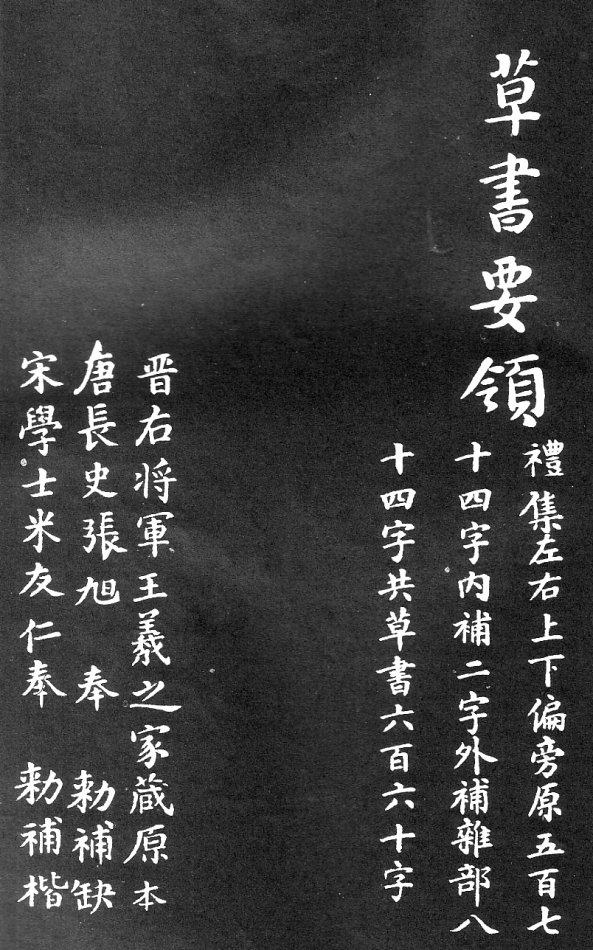 草書要領
禮集左右上下偏旁原五百七
十四字内補二字外補雜部八
十四字共草書六百六十字
晋右将軍王羲之家蔵原本
唐長史張旭 奉 勅補缺
宋學士米友仁奉 勅補楷